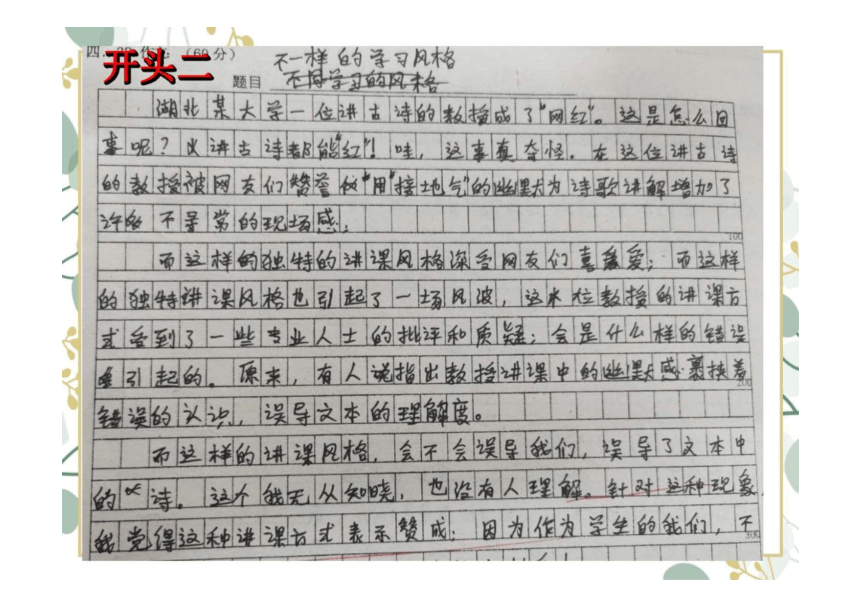 四、22.作文（60分）
开头二
不一样的学习风格
题目 不同学习的风格
湖北某大学一位讲古诗的教授成了“网红”。这是怎么回
事呢？光讲古诗都能“红”！哇，这事真奇怪。在这位讲古诗
的教授被网友们赞誉似“用”接地气”的幽默为诗歌讲解增加了
许多不寻常的现场感；
100
而这样的独特的讲课风格深受网友们喜爱；而这样
的独特讲课风格也引起了一场风波，这位教授的讲课方
式受到了一些专业人士的批评和质疑；会是什么样的错误
引起的。原来，有人说指出教授讲课中的幽默感裹挟着
200
错误的认识，误导文本的理解度。
而这样的讲课风格，会不会误导我们，误导了文本中
的诗。这个我无从知晓，也没有人理解。针对这种现象，
我觉得这种讲课方式表示赞成；因为作为学生的我们，不
300